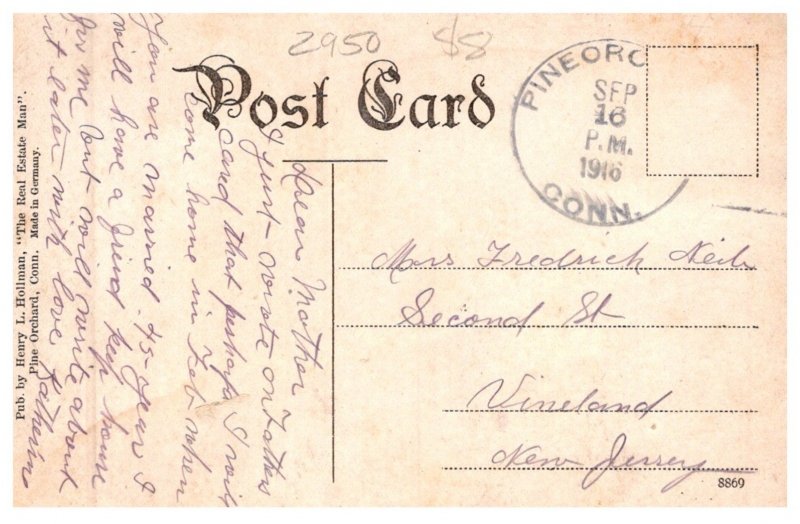 2950 $8
Post Card
PINEORC
SEP
16
P.M.
1916
CONN.
Dear Mother
I just wrote on Fathers
card that perhaps I will
come home in Feb when
You are married 45 year I
will have a friend keep house
for me but will write about
it later with love Katherine
Mrs Fredrick Neib
Second St
Vineland
New Jersey
Pub. by Henry L. Hollman, "The Real Estate Man".
Pine Orchard, Conn. Made in Germany.
8869